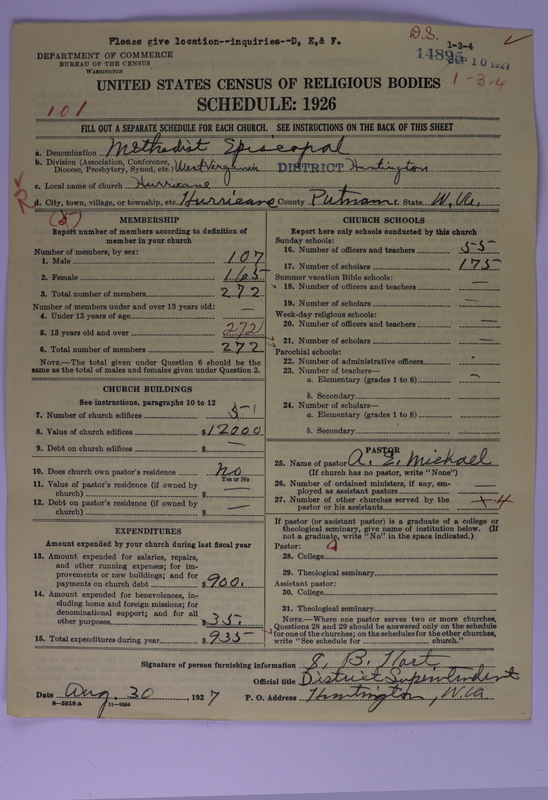 Please give location--inquiries--D, E,& F.
D.S. 1-3-4
14895
SEP 10 1927
1-3-4
DEPARTMENT OF COMMERCE
BUREAU OF THE CENSUS
WASHINGTON
UNITED STATES CENSUS OF RELIGIOUS BODIES
SCHEDULE: 1926
101
FILL OUT A SEPARATE SCHEDULE FOR EACH CHURCH. SEE INSTRUCTIONS ON THE BACK OF THIS SHEET
a. Denomination Methodist Episcopal
b. Division (Association, Conference, Diocese, Presbytery, Synod, etc.) West Virginia DISTRICT Huntington
c. Local name of church Hurricane
d. City, town, village, or township, etc. Hurricane County Putnam f. State W. Va.
MEMBERSHIP
Report number of members according to definition of
member in your church
Number of members, by sex:
1. Male 107
2. Female 165
3. Total number of members 272
Number of members under and over 13 years old:
4. Under 13 years of age —
5. 13 years old and over 272
6. Total number of members 272
NOTE.—The total given under Question 6 should be the
same as the total of males and females given under Question 3.
CHURCH BUILDINGS
See instructions, paragraphs 10 to 12
7. Number of church edifices 5
8. Value of church edifices $12000
9. Debt on church edifices $ —
10. Does church own pastor's residence No
Yes or No
11. Value of pastor's residence (if owned by
church) $ —
12. Debt on pastor's residence (if owned by
church) $ —
EXPENDITURES
Amount expended by your church during last fiscal year
13. Amount expended for salaries, repairs,
and other running expenses; for im-
provements or new buildings; and for
payments on church debt $900.
14. Amount expended for benevolences, in-
cluding home and foreign missions; for
denominational support; and for all
other purposes $35.
15. Total expenditures during year $935
CHURCH SCHOOLS
Report here only schools conducted by this church
Sunday schools:
16. Number of officers and teachers 55
17. Number of scholars 175
Summer vacation Bible schools:
18. Number of officers and teachers —
19. Number of scholars —
Week-day religious schools:
20. Number of officers and teachers —
21. Number of scholars —
Parochial schools:
22. Number of administrative officers
23. Number of teachers—
a. Elementary (grades 1 to 8) —
b. Secondary
24. Number of scholars—
a. Elementary (grades 1 to 8)
b. Secondary
PASTOR
25. Name of pastor A. E. Michael
(If church has no pastor, write "None")
26. Number of ordained ministers, if any, em-
ployed as assistant pastors
27. Number of other churches served by the
pastor or his assistants 4
If pastor (or assistant pastor) is a graduate of a college or
theological seminary, give name of institution below. (If
not a graduate, write "No" in the space indicated.)
Pastor:
28. College
29. Theological seminary
Assistant pastor:
30. College
31. Theological seminary
NOTE.—Where one pastor serves two or more churches,
Questions 28 and 29 should be answered only on the schedule
for one of the churches; on the schedules for the other churches,
write "See schedule for church."
Signature of person furnishing information S. B. Hart
Official title District Superintendent
Date Aug. 30, 1927 P. O. Address Huntington, W. Va
8-5518 a 11-9064